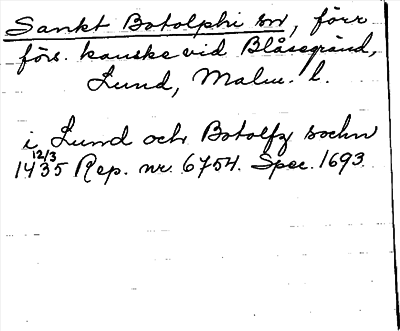 Sankt Botolphi sn, förr
förs. kanske vid Blåsegränd,
Lund, Malm. l.
i Lund och Botolfz sochn
12/3
1435 Rep. nr. 6754. Spec. 1693